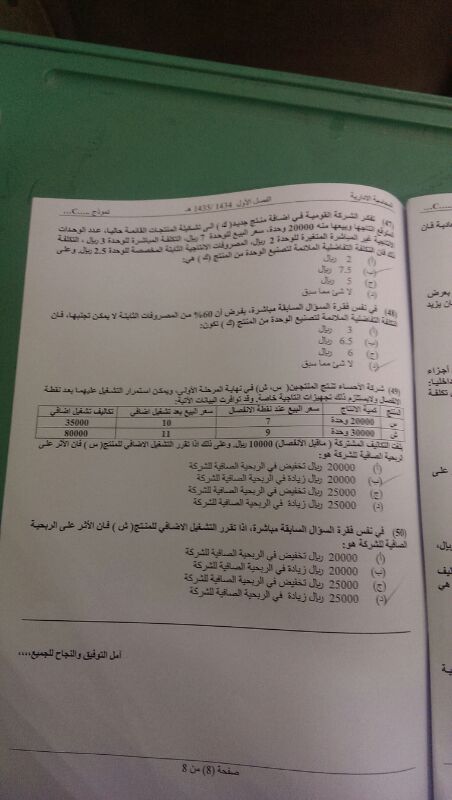 المحاسبة الادارية الفصل الأول 1434 /1435 هـ نموذج ....C...
(47) تفكر الشركة القومية في اضافة منتج جديد( ك ) الى تشكيلة المنتجات القائمة حاليا، عدد الوحدات
المتوقع انتاجها وبيعها منه 20000 وحدة، سعر البيع للوحدة 7 ريال، التكلفة المباشرة للوحدة 3 ريال ، التكلفة
الانتاجية غير المباشرة المتغيرة للوحدة 2 ريال، المصروفات الانتاجية الثابتة المخصصة للوحدة 2.5 ريال. وعلى
ذلك فان التكلفة التفاضلية الملائمة لتصنيع الوحدة من المنتج ( ك ) هي:
أ) 2 ريال
ب) 7.5 ريال
ج) 5 ريال
د) لا شئ مما سبق
(48) في نفس فقرة السؤال السابقة مباشرة، بفرض أن 60% من المصروفات الثابتة لا يمكن تجنبها، فـان
التكلفة التفاضلية الملائمة لتصنيع الوحدة من المنتج (ك ) تكون:
أ) 3 ريال
ب) 6.5 ريال
ج) 6 ريال
د) لا شئ مما سبق
(49) شركة الأحساء تنتج المنتجين( س، ش) في نهاية المرحلة الأولى، ويمكن استمرار التشغيل عليهما بعد نقطة
الانفصال ولايستلزم ذلك تجهيزات انتاجية خاصة. وقد توافرت البيانات الآتية:
المنتج كمية الانتاج سعر البيع عند نقطة الانفصال سعر البيع بعد تشغيل اضافي تكاليف تشغيل اضافي
س 20000 وحدة 7 10 35000
ش 30000 وحدة 9 11 80000
بلغت التكاليف المشتركة ( ماقبل الانفصال) 10000 ريال. وعلى ذلك اذا تقرر التشغيل الاضافي للمنتج( س ) فان الأثر على
الربحية الصافية للشركة هو:
أ) 20000 ريال تخفيض في الربحية الصافية للشركة
ب) 20000 ريال زيادة في الربحية الصافية للشركة
ج) 25000 ريال تخفيض في الربحية الصافية للشركة
د) 25000 ريال زيادة في الربحية الصافية للشركة
(50) في نفس فقرة السؤال السابقة مباشرة، اذا تقرر التشغيل الاضافي للمنتج( ش ) فـان الأثر على الربحية
الصافية للشركة هو:
أ) 20000 ريال تخفيض في الربحية الصافية للشركة
ب) 20000 ريال زيادة في الربحية الصافية للشركة
ج) 25000 ريال تخفيض في الربحية الصافية للشركة
د) 25000 ريال زيادة في الربحية الصافية للشركة
أمل التوفيق والنجاح للجميع،،،،
صفحة (8) من 8